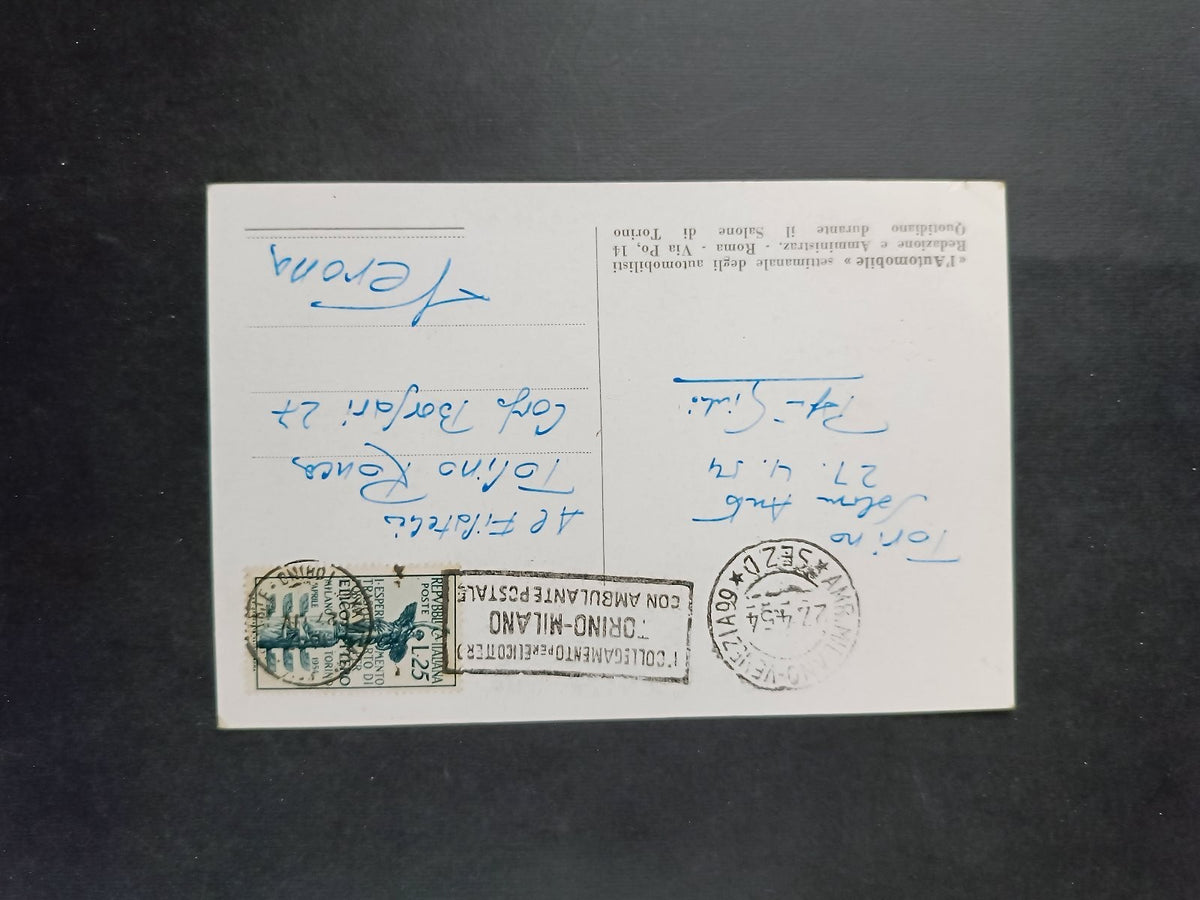 « l'Automobile » settimanale degli automobilisti
Redazione e Amministraz. - Roma - Via Po, 14
Quotidiano durante il Salone di Torino
Torino
Salone Auto
27. 4. 54
AMB. MILANO-VENEZIA 99
27.4.54
★ SEZ. D ★
1° COLLEGAMENTO PER ELICOTTERO
TORINO-MILANO
CON AMBULANTE POSTALE
REPVBBLICA ITALIANA
POSTE L.25
I. ESPERIMENTO
TRASPORTO DI
Al Filatelis
Tosino Ronca
Corso Borsari 27
Verona